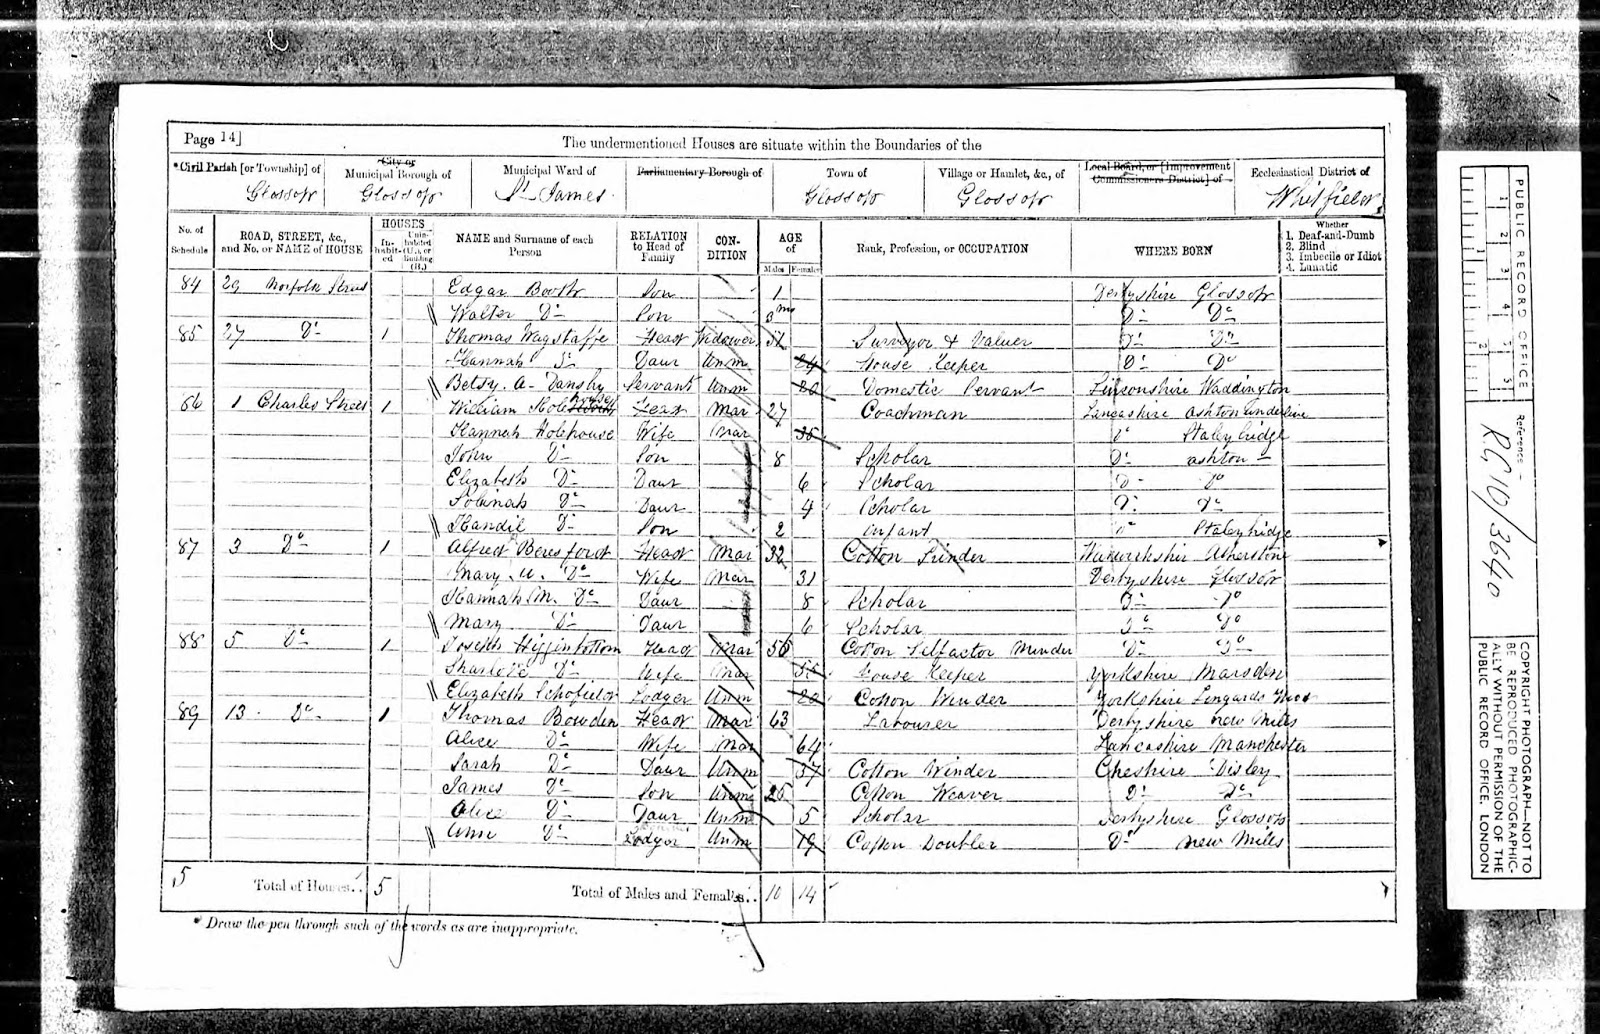 Page 14]
The undermentioned Houses are situate within the Boundaries of the
*Civil Parish [or Township] of
Glossop
City or Municipal Borough of
Glossop
Municipal Ward of
St James
Parliamentary Borough of
Town of
Glossop
Village or Hamlet, &c., of
Glossop
Local Board, or [Improvement Commissioners District] of
Ecclesiastical District of
Whitfield
No. of Schedule
ROAD, STREET, &c., and No. or NAME of HOUSE
HOUSES
In-habit-ed
Unin-habited (U.), or Building (B.)
NAME and Surname of each Person
RELATION to Head of Family
CON-DITION
AGE of
Males Females
Rank, Profession, or OCCUPATION
WHERE BORN
Whether
1. Deaf-and-Dumb
2. Blind
3. Imbecile or Idiot
4. Lunatic
84 29 Norfolk Street Edgar Booth Son 1 Derbyshire Glossop
Walter Do Son 3 mo Do Do
85 27 Do 1 Thomas Wagstaffe Head Widower Surveyor & Valuer Do Do
Hannah Do Daur Unm 24 House Keeper Do Do
Betsy A Dansby Servant Unm 20 Domestic Servant Lincolnshire Waddington
86 1 Charles Street 1 William Holehouse Head Mar 27 Coachman Lancashire Ashton under line
Hannah Holehouse Wife Mar 35 Do Staleybridge
John Do Son 8 Scholar Do ashton
Elizabeth Do Daur 6 Scholar Do Do
Do Daur 4 Scholar Do Do
Do Son 2 infant Do Staleybridge
87 3 Do 1 Alfred Beresford Head Mar 32 Cotton Warwickshire Atherstone
Mary Do Wife Mar 31 Derbyshire Glossop
Hannah M. Do Daur 8 Scholar Do Do
Mary Do Daur 6 Scholar Do Do
88 5 Do 1 Joseph Higginbottom Head Mar 56 Cotton Selfactor Minder Do Do
Sharlote Do Wife Mar House Keeper Yorkshire Marsden
Elizabeth Schofield Lodger Unm 22 Cotton Winder Yorkshire Lingards Wood
89 13 Do 1 Thomas Bowden Head Mar 63 Labourer Derbyshire New Mills
Alice Do Wife Mar 64 Lancashire Manchester
Sarah Do Daur Unm 37 Cotton Winder Cheshire Disley
James Do Son Unm 25 Cotton Weaver Do Do
Alice Do Daur Unm 5 Scholar Derbyshire Glossop
Ann Do Lodger Unm 19 Cotton Doubler Do New Mills
5 Total of Houses.. 5 Total of Males and Females.. 10 14
* Draw the pen through such of the words as are inappropriate.
PUBLIC RECORD OFFICE
1 2 3 4 5
1 2
Reference:-
RG10/3640
COPYRIGHT PHOTOGRAPH—NOT TO
BE REPRODUCED PHOTOGRAPHIC-
ALLY WITHOUT PERMISSION OF THE
PUBLIC RECORD OFFICE, LONDON